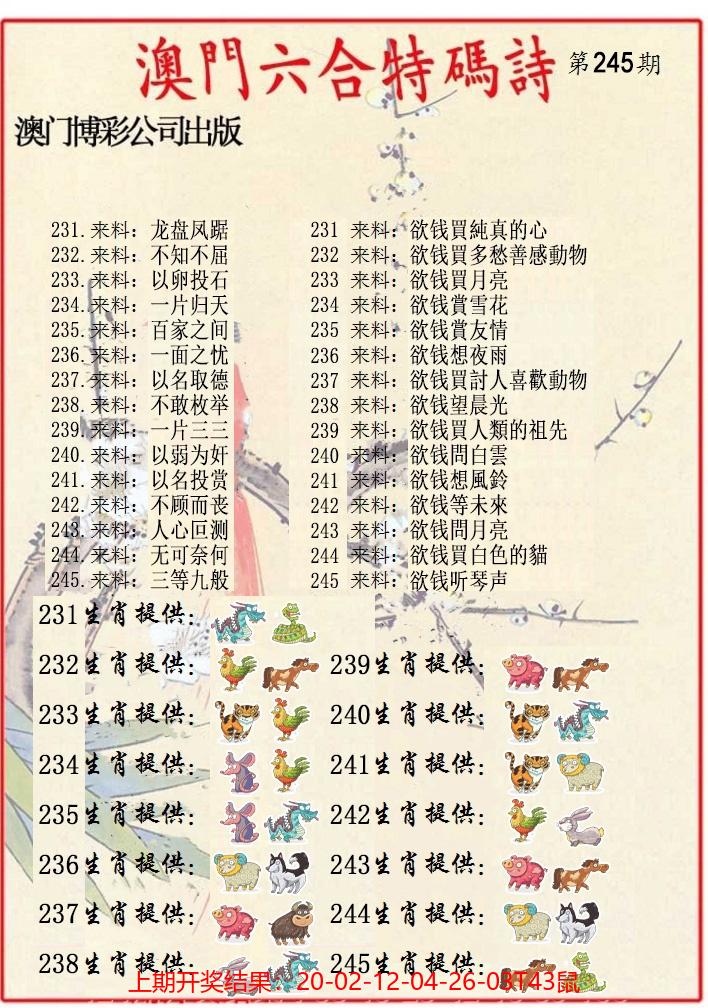 澳門六合特碼詩 第245期
澳门博彩公司出版
231.来料：龙盘凤踞
232.来料：不知不屈
233.来料：以卵投石
234.来料：一片归天
235.来料：百家之间
236.来料：一面之忧
237.来料：以名取德
238.来料：不敢枚举
239.来料：一片三三
240.来料：以弱为奸
241.来料：以名投赏
242.来料：不顾而丧
243.来料：人心叵测
244.来料：无可奈何
245.来料：三等九般
231 来料：欲钱買純真的心
232 来料：欲钱買多愁善感動物
233 来料：欲钱買月亮
234 来料：欲钱賞雪花
235 来料：欲钱賞友情
236 来料：欲钱想夜雨
237 来料：欲钱買討人喜歡動物
238 来料：欲钱望晨光
239 来料：欲钱買人類的祖先
240 来料：欲钱問白雲
241 来料：欲钱想風鈴
242 来料：欲钱等未來
243 来料：欲钱問月亮
244 来料：欲钱買白色的貓
245 来料：欲钱听琴声
231生肖提供：
232生肖提供：
233生肖提供：
234生肖提供：
235生肖提供：
236生肖提供：
237生肖提供：
238生肖提供：
239生肖提供：
240生肖提供：
241生肖提供：
242生肖提供：
243生肖提供：
244生肖提供：
245生肖提供：
上期开奖结果：20-02-12-04-26-03T43鼠